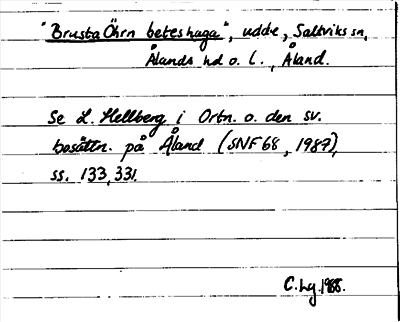 "Brusta Öhrn beteshaga", udde, Saltviks sn,
Ålands hd o. l., Åland.
Se L. Hellberg i Ortn. o. den sv.
bosättn. på Åland (SNF 68, 1987),
ss. 133, 331.
C. Lg. 1988.